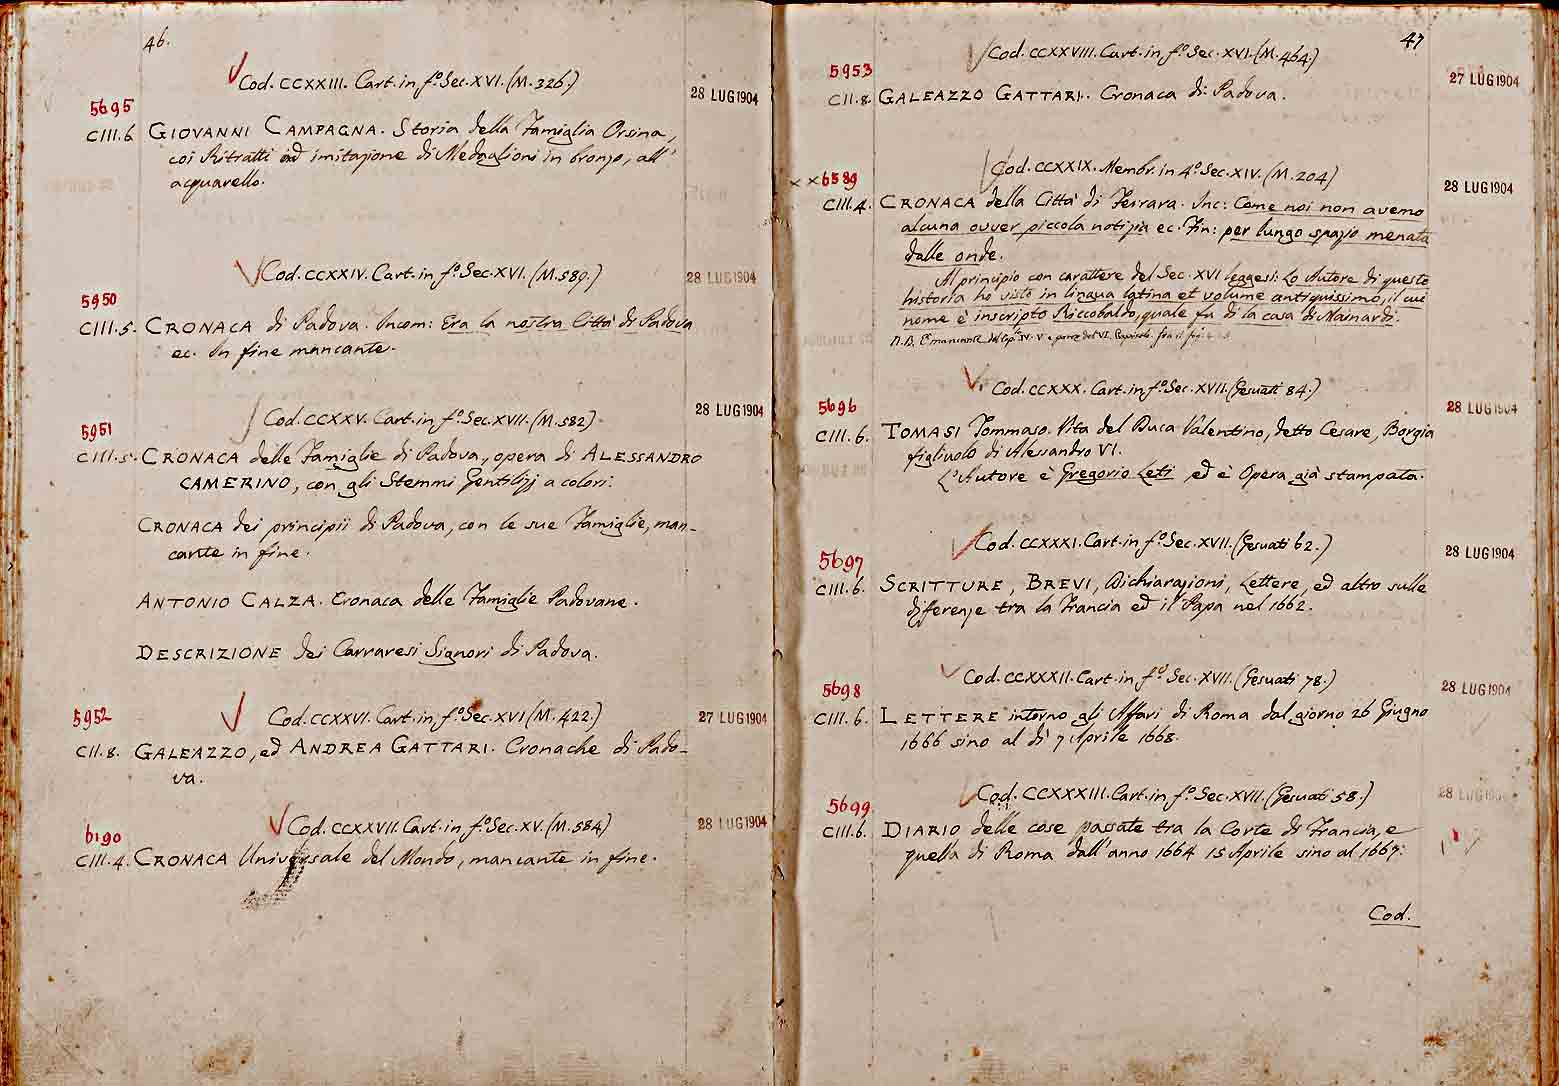 46.
Cod. CCXXIII. Cart. in fº. Sec. XVI. (M. 326.)
28 LUG 1904
5695
CIII. 6. GIOVANNI CAMPAGNA. Storia della Famiglia Orsina,
coi Ritratti ad imitazione di Medaglioni in bronzo, all'
acquarello.
Cod. CCXXIV. Cart. in fº. Sec. XVI. (M. 589.)
28 LUG 1904
5950
CIII. 5. CRONACA di Padova. Incom: Era la nostra Città di Padova
ec. In fine mancante.
Cod. CCXXV. Cart. in fº. Sec. XVII. (M. 582)
28 LUG 1904
5951
CIII. 5. CRONACA delle Famiglie di Padova, opera di ALESSANDRO
CAMERINO, con gli Stemmi Gentilizj a colori.
CRONACA dei principii di Padova, con le sue Famiglie, man-
cante in fine.
ANTONIO CALZA. Cronaca delle Famiglie Padovane.
DESCRIZIONE dei Carraresi Signori di Padova.
Cod. CCXXVI. Cart. in fº. Sec. XVI (M. 422.)
27 LUG 1904
5952
CII. 8. GALEAZZO, ed ANDREA GATTARI. Cronache di Pado-
va.
Cod. CCXXVII. Cart. in fº. Sec. XV. (M. 584)
28 LUG 1904
6190
CIII. 4. CRONACA Universale del Mondo, mancante in fine.
47
Cod. CCXXVIII. Cart. in fº. Sec. XVI. (M. 464.)
27 LUG 1904
5953
CII. 8. GALEAZZO GATTARI. Cronaca di Padova.
Cod. CCXXIX. Membr. in 4º. Sec. XIV. (M. 204)
28 LUG 1904
x x 6589
CIII. 4. CRONACA della Città di Ferrara. Inc: Come noi non avemo
alcuna ovver piccola notizia ec. Fin: per lungo spazio menata
dalle onde.
Al principio con carattere del Sec. XVI leggesi: Lo Autore di questa
historia ho visto in lingua latina et volume antiquissimo, il cui
nome è inscripto Riccobaldo, quale fu di la casa di Mainardi.
N.B. È mancante del Cap. IV. V e parte del VI.
Cod. CCXXX. Cart. in fº. Sec. XVII. (Gesuati 84.)
28 LUG 1904
5696
CIII. 6. TOMASI Tommaso. Vita del Duca Valentino, detto Cesare, Borgia
figliuolo di Alessandro VI.
L'Autore è Gregorio Leti, ed è Opera già stampata.
Cod. CCXXXI. Cart. in fº. Sec. XVII. (Gesuati 62.)
28 LUG 1904
5697
CIII. 6. SCRITTURE, BREVI, Dichiarazioni, Lettere, ed altro sulle
diferenze tra la Francia ed il Papa nel 1662.
Cod. CCXXXII. Cart. in fº. Sec. XVII. (Gesuati 78.)
28 LUG 1904
5698
CIII. 6. LETTERE intorno gli Affari di Roma dal giorno 26 Giugno
1666 sino al dì 7 Aprile 1668.
Cod. CCXXXIII. Cart. in fº. Sec. XVII. (Gesuati 58.)
28 LUG 1904
5699
CIII. 6. DIARIO delle cose passate tra la Corte di Francia, e
quella di Roma dall'anno 1664 15 Aprile sino al 1667.
Cod.